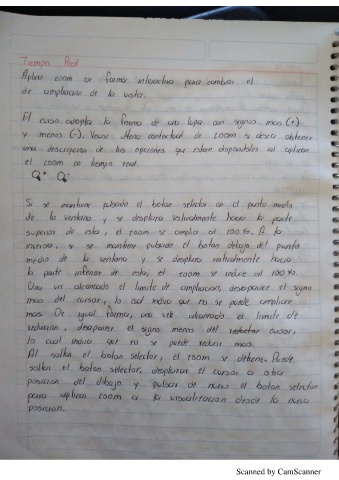 Tiempo Real
Aplica zoom de forma interactiva para cambiar el
de ampliacion de la vista.
El cursor adopta la forma de una lupa con signos mas (+)
y menos (-). Vease Menu contextual de zoom si desea obtener
una descripcion de las opciones que estan disponibles al aplicar
el zoom en tiempo real.
Q+ Q-
Si se mantiene pulsado el boton selector en el punto medio
de la ventana y se desplaza verticalmente hacia la parte
superior de esta, el zoom se amplia al 100%. A la
inversa, si se mantiene pulsado el boton debajo del punto
medio de la ventana y se desplaza verticalmente hacia
la parte inferior de esta, el zoom se reduce al 100%.
Una vez alcanzado el limite de ampliacion, desaparece el signo
mas del cursor, lo cual indica que no se puede ampliar
mas. De igual forma, una vez alcanzado el limite de
reduccion, desaparece el signo menos del cursor,
lo cual indica que no se puede reducir mas.
Al soltar el boton selector, el zoom se detiene. Puede
soltar el boton selector, desplazar el cursor a otra
posicion del dibujo y pulsar de nuevo el boton selector
para aplicar zoom a la visualizacion desde la nueva
posicion.
Scanned by CamScanner